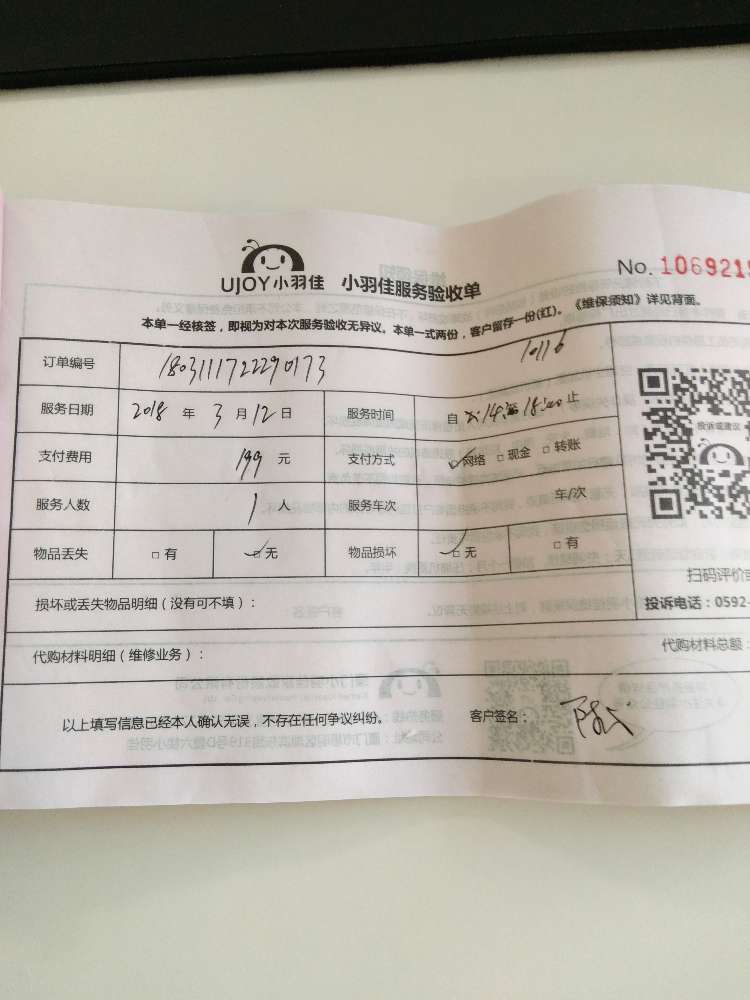 UJOY小羽佳 小羽佳服务验收单 No. 1069219
本单一经核签，即视为对本次服务验收无异议。本单一式两份，客户留存一份(红)。《维保须知》详见背面。
订单编号 180311172290173 10116
服务日期 2018 年 3 月 12 日 服务时间 自 14:00 18:00 止
支付费用 199 元 支付方式 网络 现金 转账
投诉或建议
服务人数 1 人 服务车次 年/次
物品丢失 有 无 物品损坏 无 有
扫码评价
损坏或丢失物品明细（没有可不填）：
投诉电话：0592-
代购材料明细（维修业务）：
代购材料总额：
以上填写信息已经本人确认无误，不存在任何争议纠纷。 客户签名：